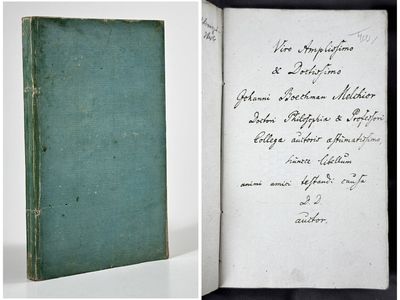 Viro Amplissimo
& Doctissimo
Johanni Boechman Melchior
Doctori Philosophiæ & Professori
Collega autoris æstumatissimo,
hunce libellum
animi amici testandi causa
D. D.
auctor.